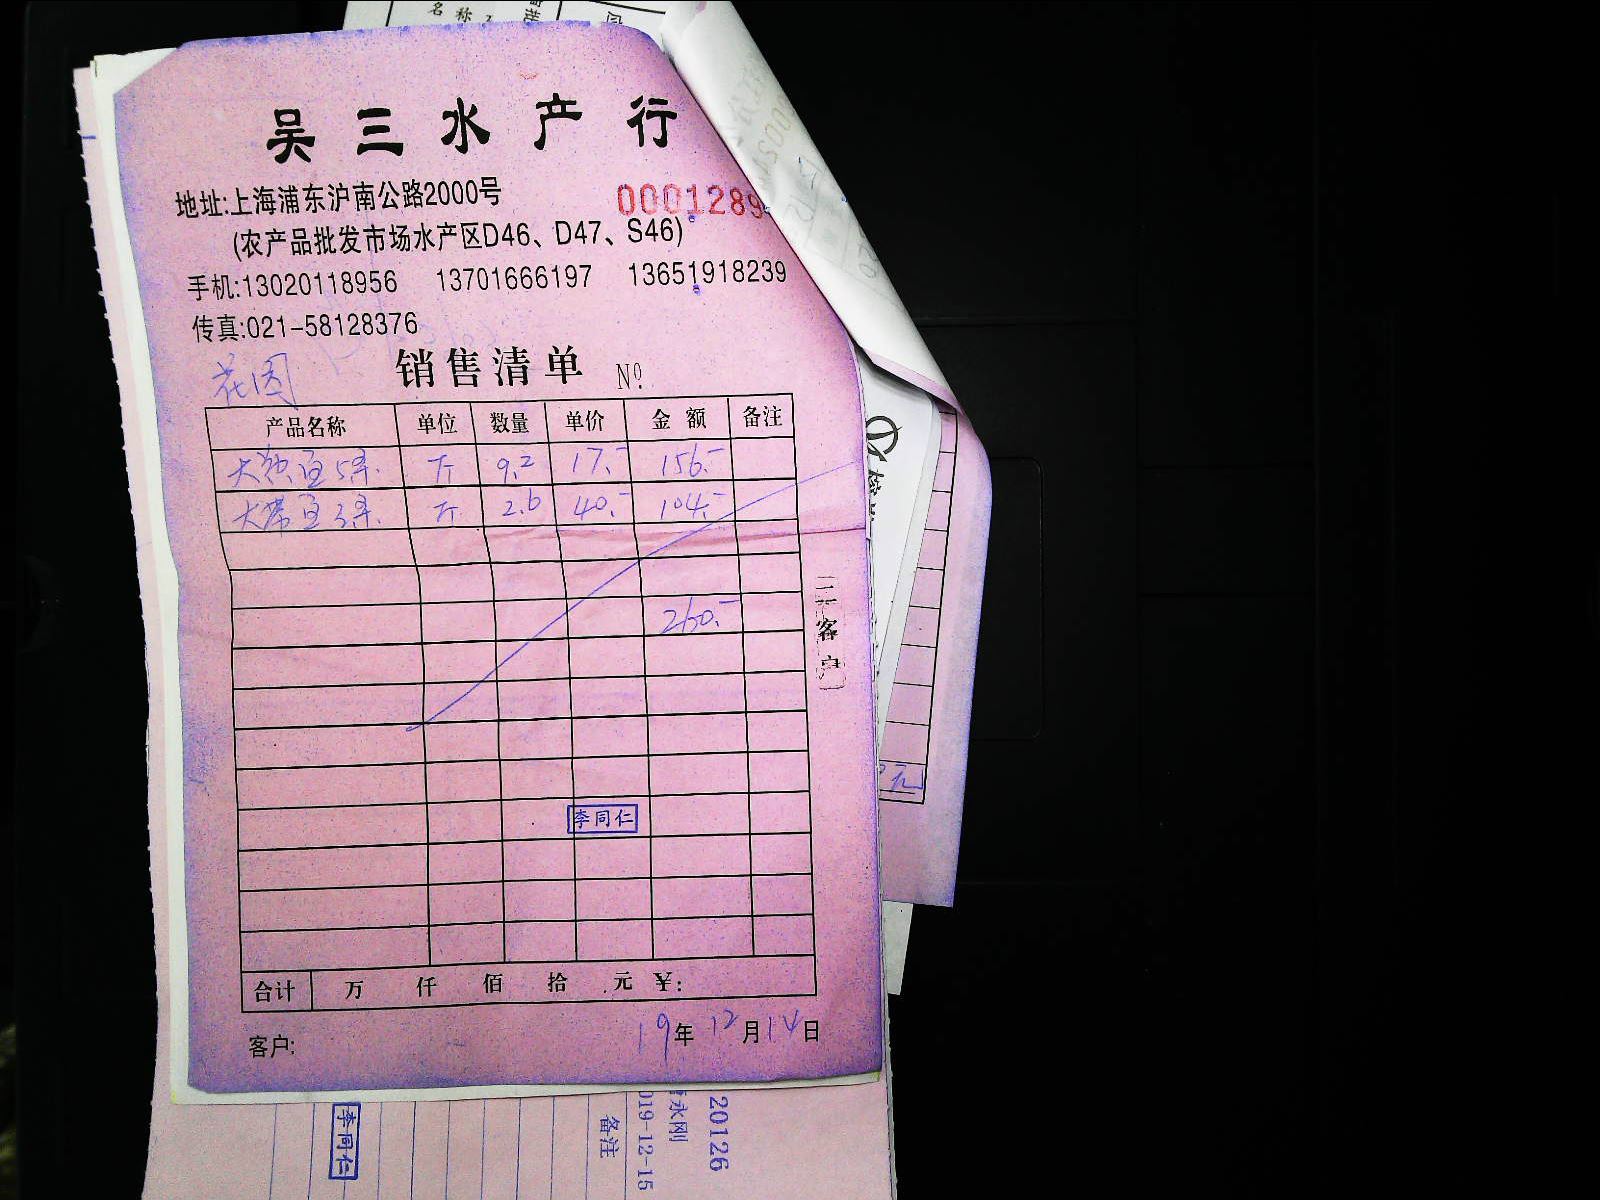 名 称
吴三水产行
地址:上海浦东沪南公路2000号
0001289
(农产品批发市场水产区D46、D47、S46)
手机:13020118956 13701666197 13651918239
传真:021-58128376
花园
销售清单 Nº.
产品名称 单位 数量 单价 金额 备注
斤 9.2 17.- 156.-
大带鱼3条 斤 2.6 40.- 104.-
260.-
二
客户
元
李同仁
合计 万 仟 佰 拾 元 ¥:
19年12月14日
客户:
李同仁
备注
019-12-15
永刚
20126